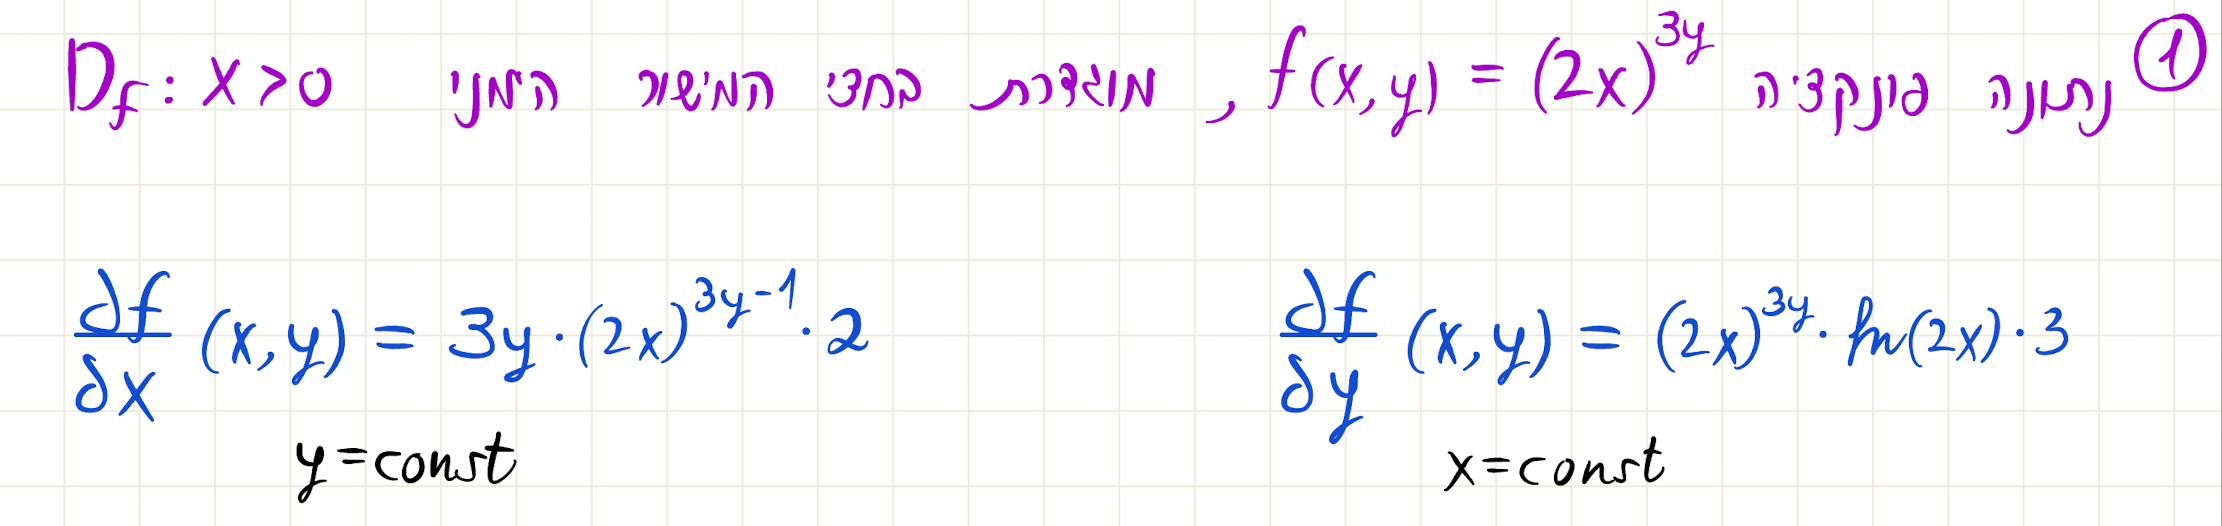 ① נתונה פונקציה f(x,y) = (2x)^{3y} , מוגדרת בחצי המישור הימני D_f : x>0
∂f/∂x (x,y) = 3y·(2x)^{3y-1}·2
∂f/∂y (x,y) = (2x)^{3y}·ln(2x)·3
y=const
x=const